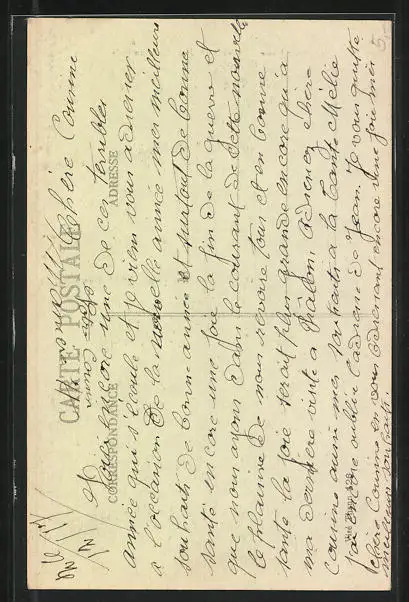 CARTE POSTALE
CORRESPONDANCE
ADRESSE
Chère Cousine
Voilà encore une de ces terribles
année qui s'écoule et je viens vous adresser
a l'occasion de la nouvelle année mes meilleurs
souhaits de bonne année et surtout de bonne
santé encore une fois la fin de la guerre et
que nous ayons dans le courant de cette nouvelle
le plaisir de nous revoire tous et en bonne
santé la joie serait plus grande encore qu'a
ma dernière visite a Chalons adressez chère
Cousine aussi mes souhaits a la tante Mélie
j'ai encore oublié l'adresse de Jean. Je vous quitte
chère Cousine en vous adressant encore une fois mes
meilleurs souhaits.
Votre Cousin